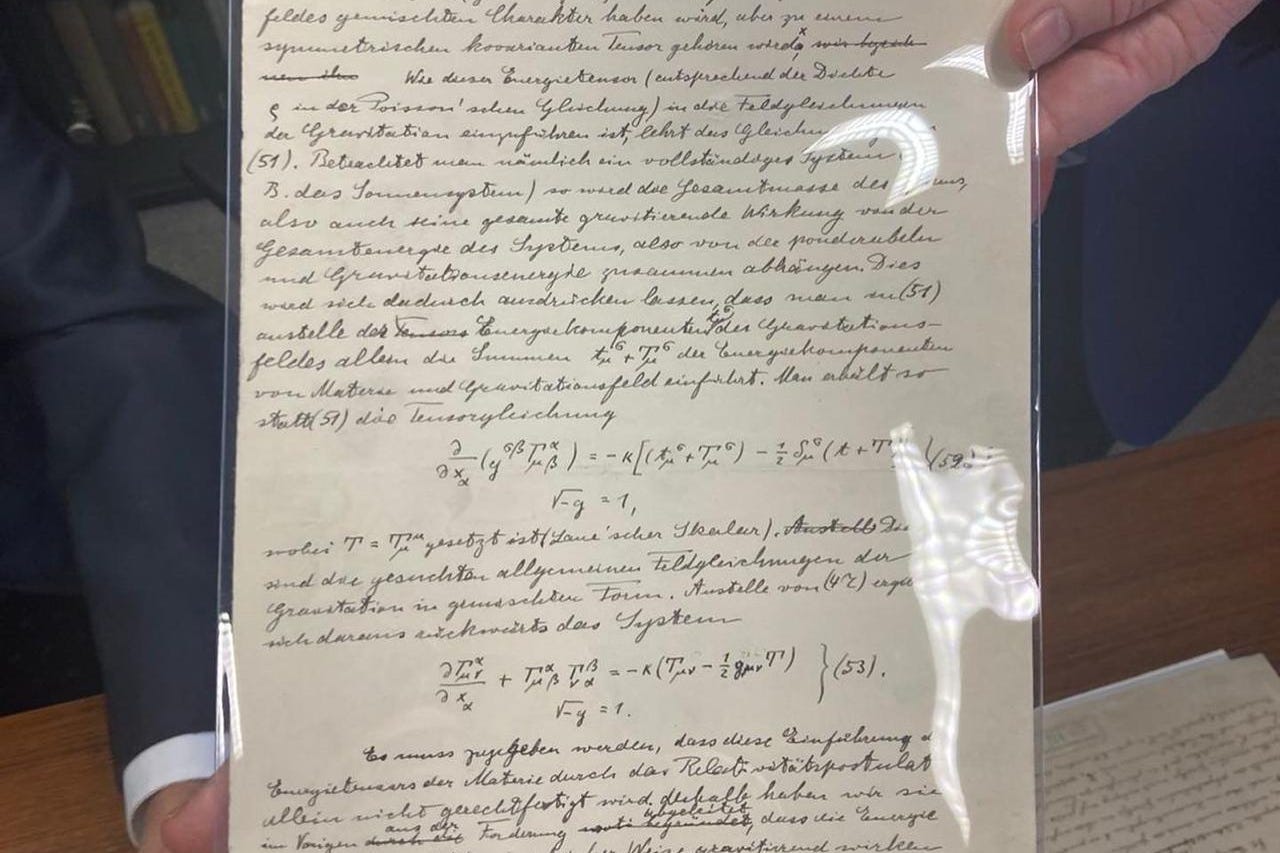 feldes gemischten Charakter haben wird, aber zu einem
symmetrischen kovarianten Tensor gehören wird.x wir bezeich-
nen ihn Wie dieser Energietensor (entsprechend der Dichte
ϱ in der Poisson'schen Gleichung) in die Feldgleichungen
der Gravitation einzuführen ist, lehrt das
(51). Betrachtet man nämlich ein vollständiges System
B. das Sonnensystem) so wird die Gesamtmasse des
also auch seine gesamte gravitierende Wirkung von der
Gesamtenergie des Systems, also von der ponderabeln
und Gravitationsenergie zusammen abhängen. Dies
wird sich dadurch ausdrücken lassen, dass man in (51)
anstelle der Tensors Energiekomponenten t_μ^σ des Gravitations-
feldes allein die Summen t_μ^σ + T_μ^σ der Energiekomponenten
von Materie und Gravitationsfeld einführt. Man erhält so
statt (51) die Tensorgleichung
∂/∂x_α (g^{σβ} Γ_{μβ}^α) = -κ[(t_μ^σ + T_μ^σ) - ½ δ_μ^σ (t + T } (52)
√-g = 1,
wobei T = T_μ^μ gesetzt ist (Laue'scher Skalar). Anstelle
sind die gesuchten allgemeinen Feldgleichungen der
Gravitation in gemischten Form. Anstelle von (47)
sich daraus rückwärts das System
∂Γ_{μν}^α/∂x_α + Γ_{μβ}^α Γ_{να}^β = -κ(T_{μν} - ½ g_{μν} T) } (53).
√-g = 1.
Es muss zugegeben werden, dass diese Einführung
Energietensors der Materie durch das Relativitätspostulat
allein nicht gerechtfertigt wird. deshalb haben wir sie
im Vorigen durch die aus der Forderung abgeleitet, dass die Energie
Weise gravitierend wirken